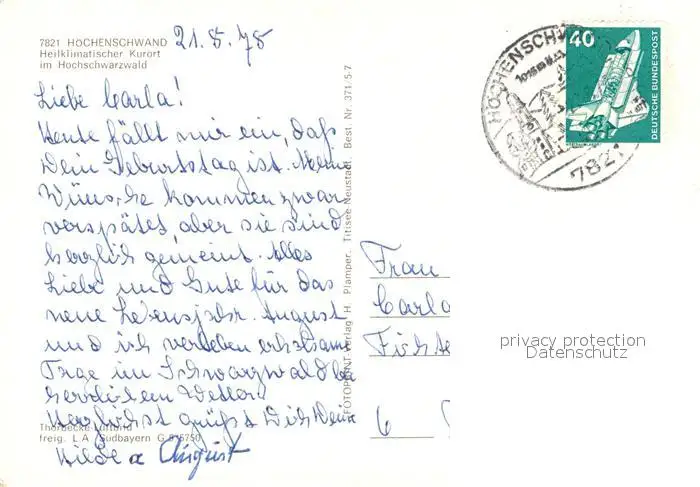 7821 HÖCHENSCHWAND
Heilklimatischer Kurort
im Hochschwarzwald
21.5.75
Liebe Carla!
Heute fällt mir ein, daß
Dein Geburtstag ist. Meine
Wünsche kommen zwar
verspätet, aber sie sind
herzlich gemeint. Alles
Liebe und Gute für das
neue Lebensjahr. August
und ich verleben erholsame
Tage im Schwarzwald bei
herrlichem Wetter.
Herzlichst grüßt Dich Deine
Hilde u August
Thorbecke-Luftbild
freig. L.A. Südbayern G 5/5750
FOTOPRINT-Verlag H. Plamper, Titisee-Neustadt, Best. Nr. 371/5-7
HÖCHENSCHWAND
782
40
DEUTSCHE BUNDESPOST
Frau
Carla
6
privacy protection
Datenschutz